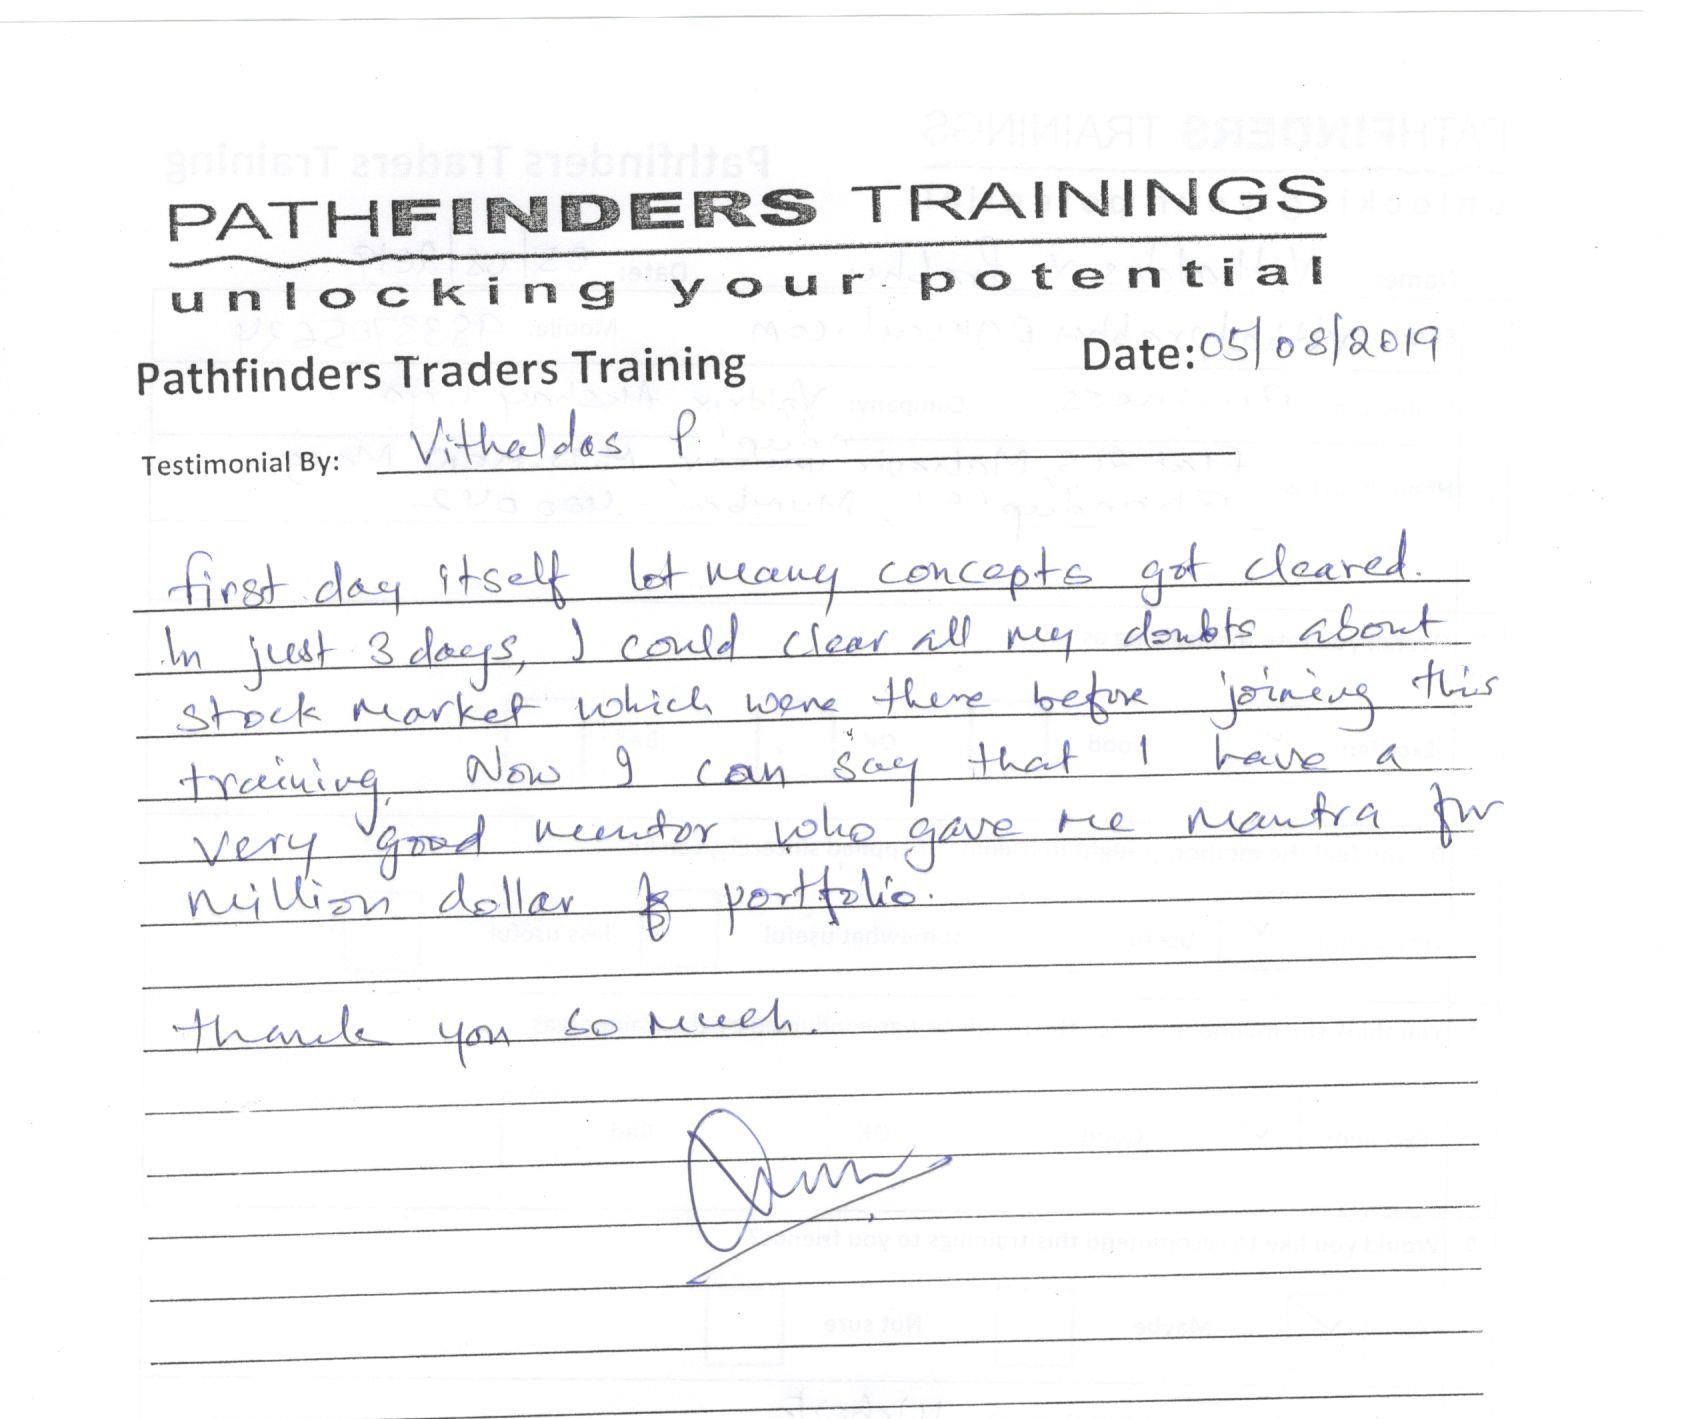 PATHFINDERS TRAININGS
unlocking your potential
Pathfinders Traders Training
Date: 05/08/2019
Testimonial By: Vithaldas P.
first day itself lot many concepts got cleared.
In just 3 days, I could clear all my doubts about
stock market which were there before joining this
training. Now I can say that I have a
very good mentor who gave me mantra for
million dollar portfolio.
thank you so much.